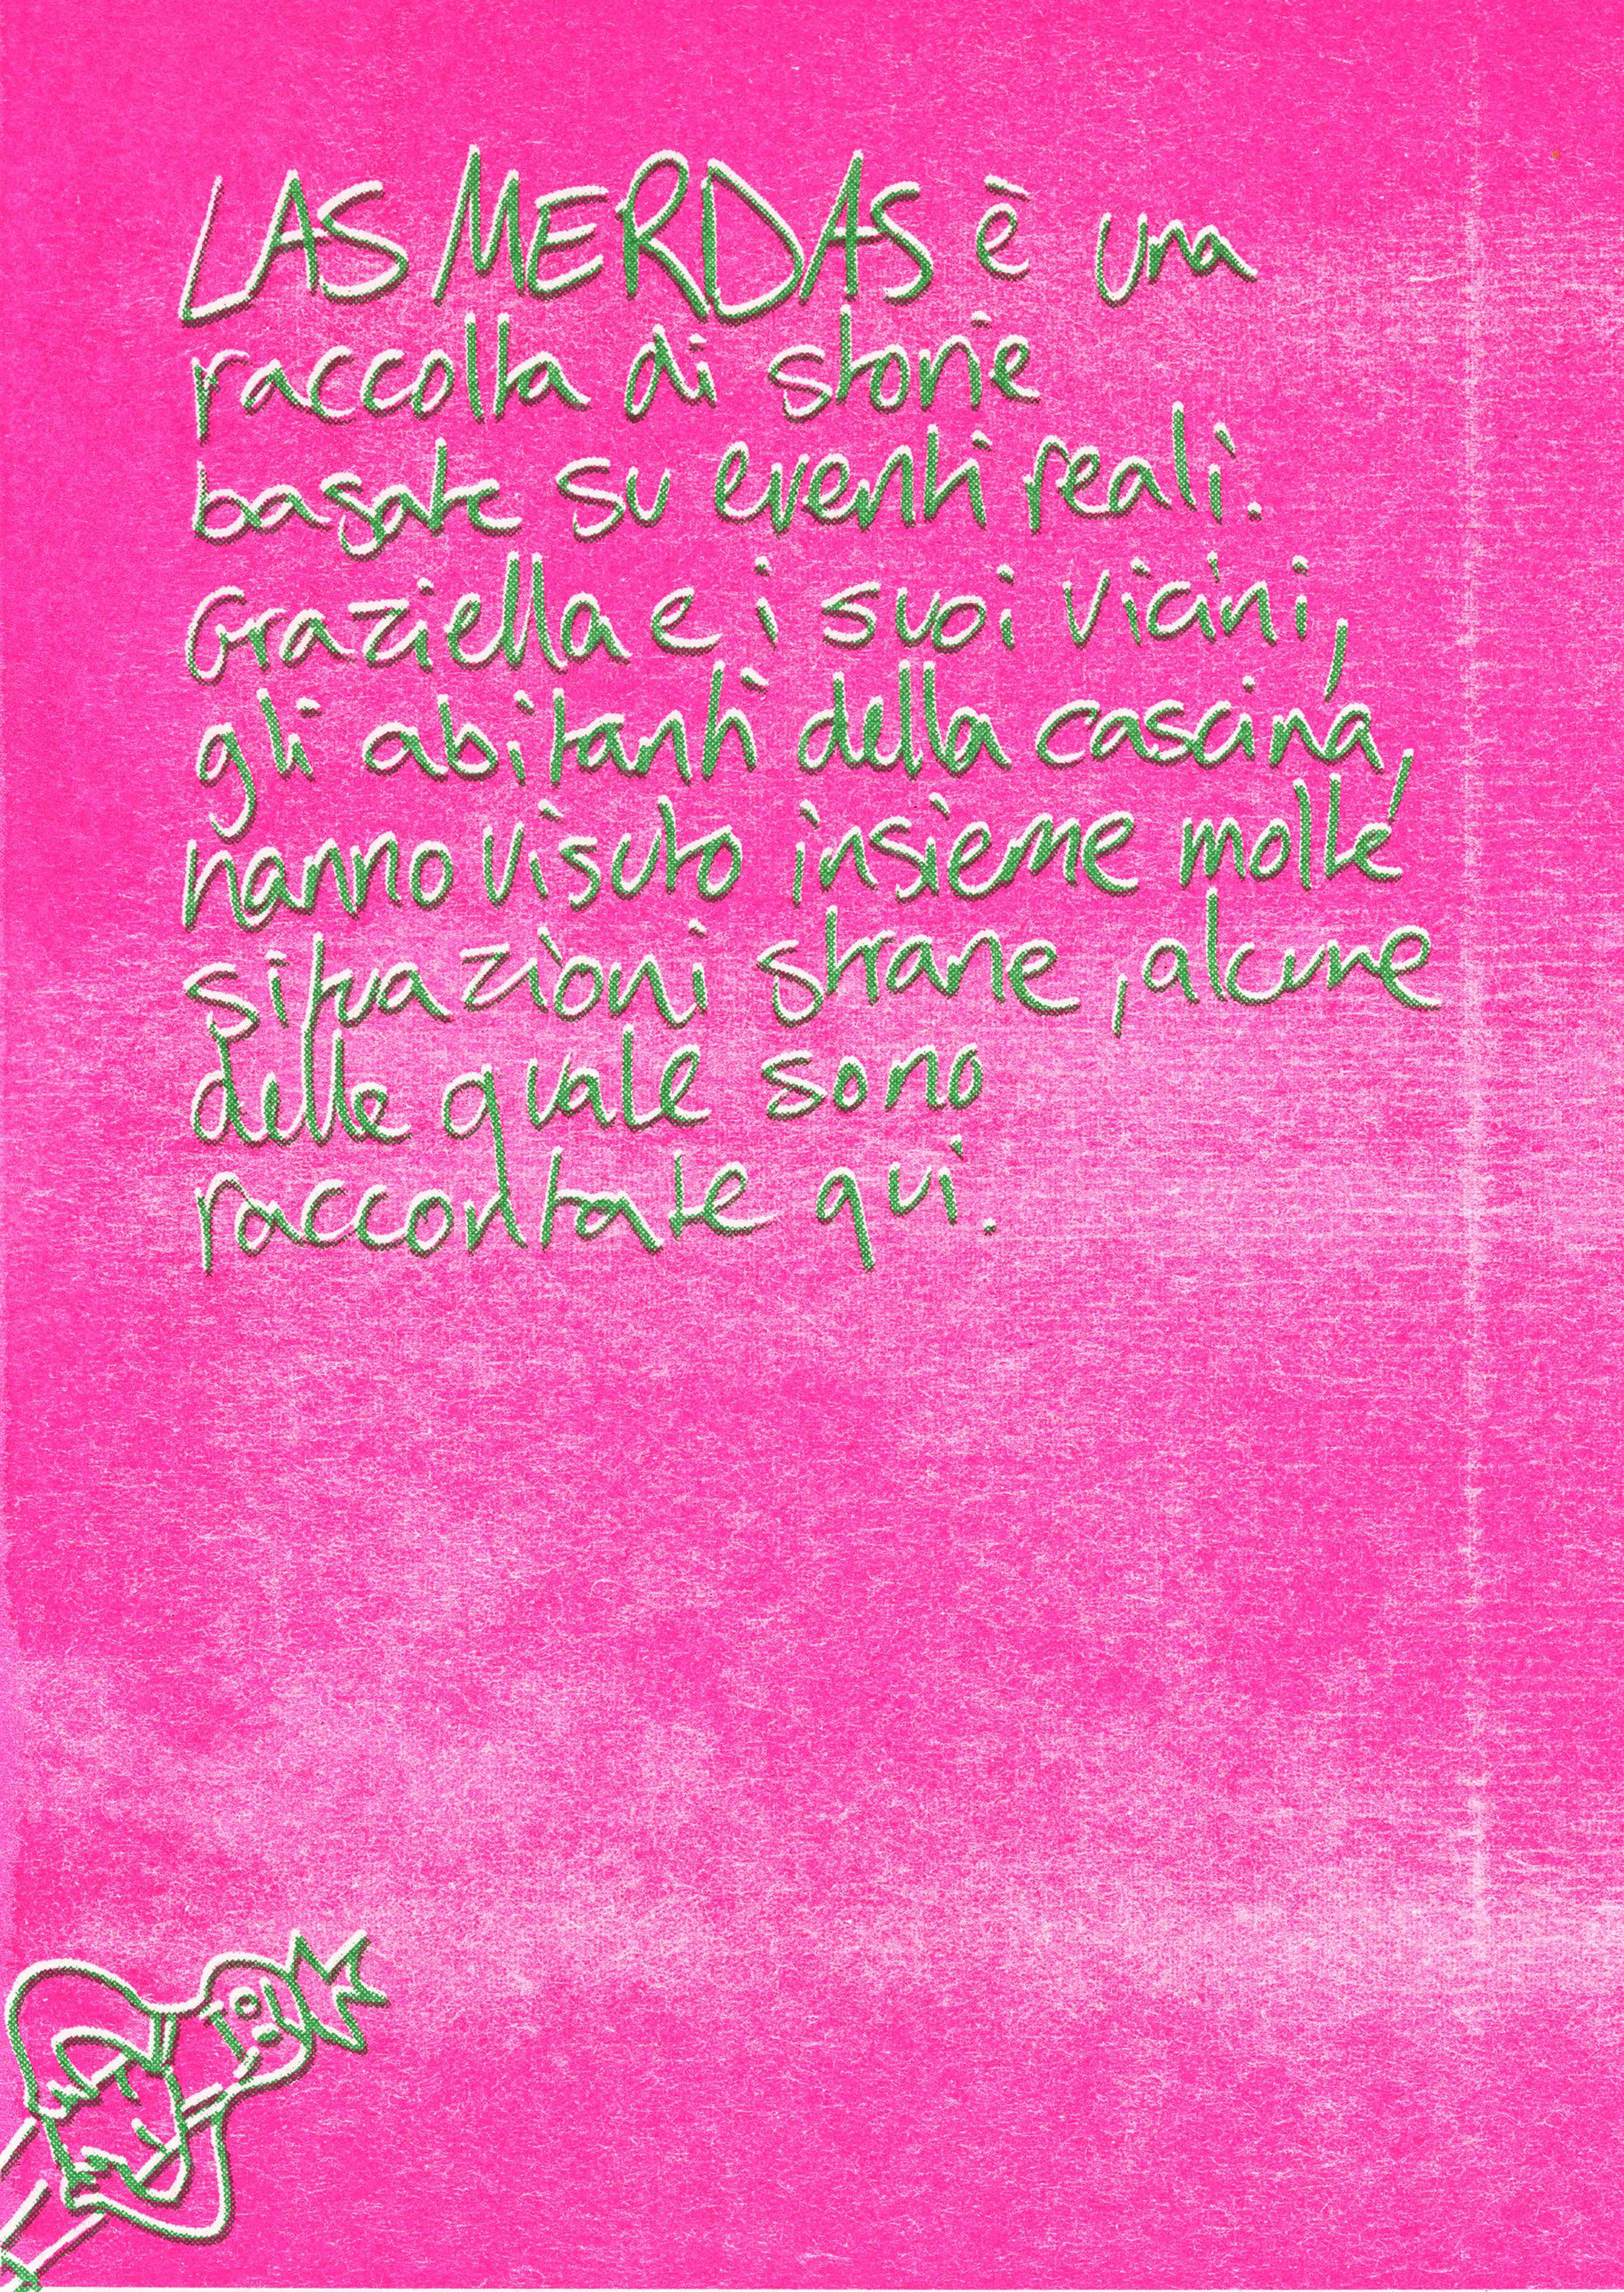 LAS MERDAS è una
raccolta di storie
basate su eventi reali.
Graziella e i suoi vicini,
gli abitanti della cascina,
hanno visuto insieme molte
situazioni strane, alcune
delle quale sono
raccontate qui.